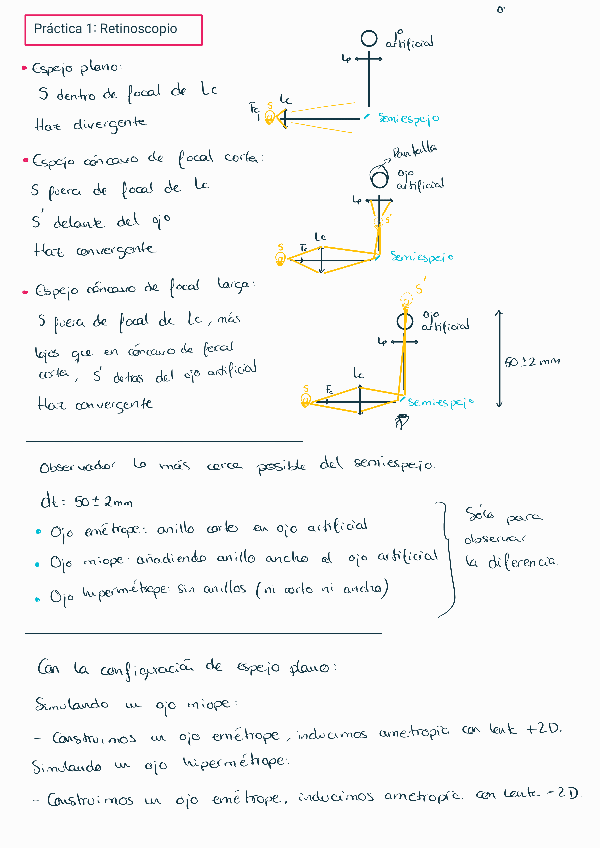 Práctica 1: Retinoscopio
• Espejo plano:
S dentro de focal de Lc
Haz divergente
ojo
artificial
Lp
Fc
S
Lc
Semiespejo
• Espejo cóncavo de focal corta:
S fuera de focal de Lc
S' delante del ojo
Haz convergente
Pantalla
ojo
artificial
Lp
S'
S
Fc
Lc
Semiespejo
• Espejo cóncavo de focal larga:
S fuera de focal de Lc, más
lejos que en cóncavo de focal
corta, S' detras del ojo artificial
Haz convergente
S'
ojo
artificial
Lp
50 ± 2 mm
Lc
S
Fc
Semiespejo
Observador lo más cerca posible del semiespejo.
dt = 50 ± 2mm
• Ojo emétrope: anillo corto en ojo artificial
• Ojo miope: añadiendo anillo ancho al ojo artificial
• Ojo hipermétrope: sin anillos (ni corto ni ancho)
Sólo para
observar
la diferencia.
Con la configuración de espejo plano:
Simulando un ojo miope:
- Construimos un ojo emétrope, inducimos ametropía con lente +2D.
Simulando un ojo hipermétrope:
- Construimos un ojo emétrope, inducimos ametropía con lente -2D